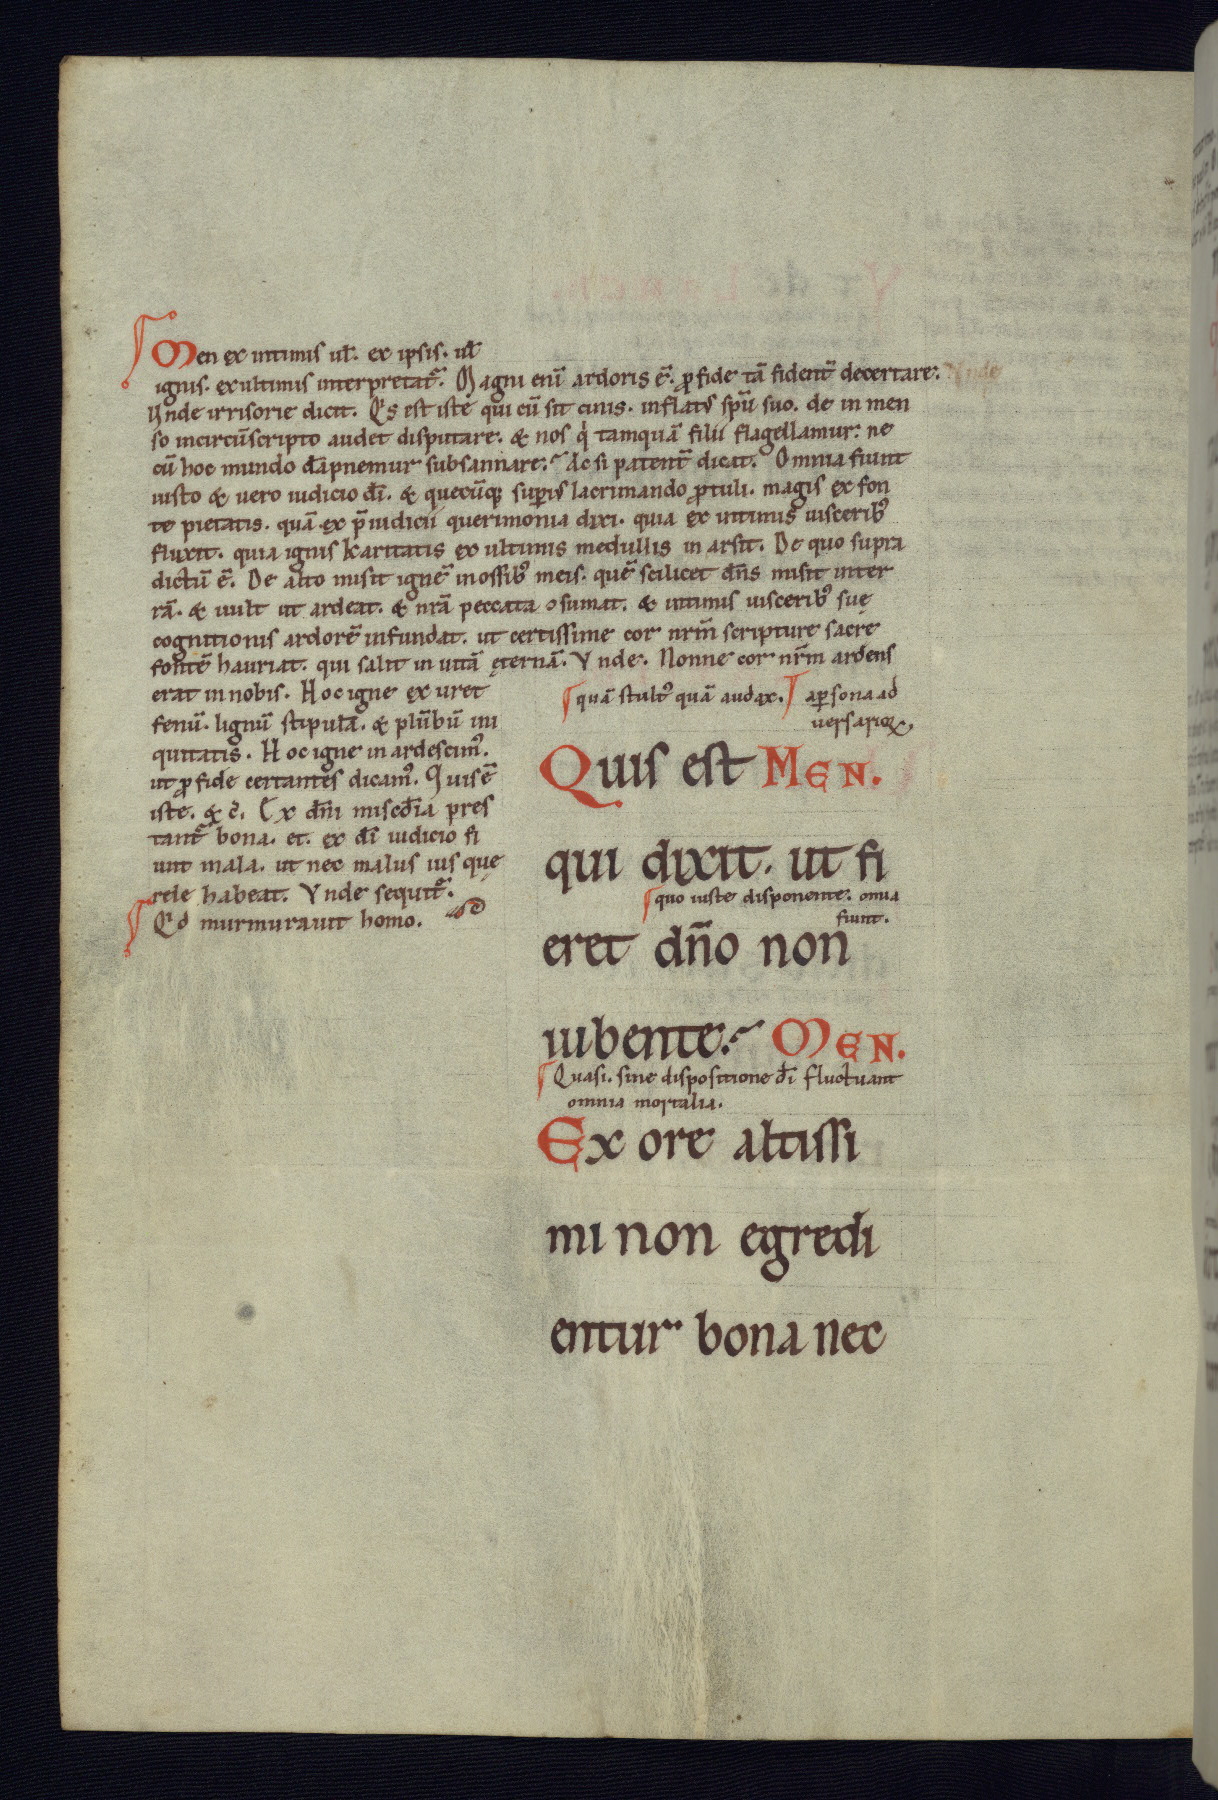 Men ex intimis ul̄. ex ipsis. ul̄
ignis. ex ultimis interpretat̄. Magni eni᷒ ardoris ē. ꝓ fide tā fident̄ decertare.
Vnde irrisorie dicit. Qs est iste qui cū sit cinis. inflatus spū suo. de in men
so incircūscripto audet disputare. & nos q tamquā filii flagellamur. ne
cū hoc mundo dāpnemur subsannare. Ac si patent̄ dicat. Omnia fiunt
iusto & uero iudicio dī. & quecūq; superius lacrimando ꝓtuli. magis ex fon
te pietatis. quā ex p̄iudicii querimonia dixi. quia ex intimis uisceribꝰ
fluxit. quia ignis karitatis ex ultimis medullis in arsit. De quo supra
dictū ē. De alto misit ignē in ossibꝰ meis. quē scilicet dn̄s misit inter
rā. & uult ut ardeat. & nrā peccata ꝯsumat. & intimis uisceribꝰ suę
cognitionis ardorē infundat. ut certissime cor nrm̄ scripture sacre
fontē hauriat. qui salit in uitā ęternā. Vnde. Nonne cor nrm̄ ardens
erat in nobis. Hoc igne exuret
fenū. lignū stipulā. & plūbū ini
quitatis. Hoc igne in ardescimꝰ.
ut ꝓ fide certantes dicamꝰ. Quis ē
iste. & c̄. Ex dn̄i misc̄dia pres
tant̄ bona. et. ex dī iudicio fi
unt mala. ut nec malus ius que
rele habeat. Vnde sequit̄.
Qd murmurauit homo.
quā stultꝰ quā audax. a persona ad
uersarioꝝ.
Quis est MEN.
qui dixit. ut fi
quo iuste disponente. om̄ia
fiunt.
eret dn̄o non
iubente. MEN.
Quasi. sine dispositione dī fluctuant
omnia mortalia.
Ex ore altissi
mi non egredi
entur bona nec